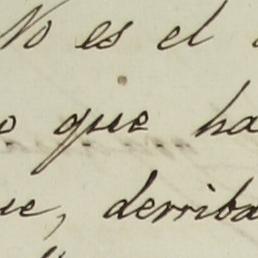 No es el
que ha
ue, derriba